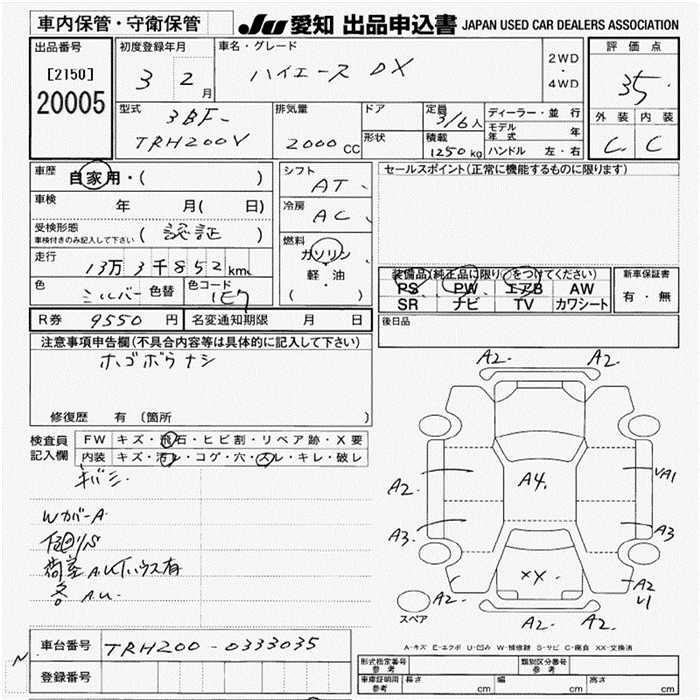 車内保管・守衛保管
JU 愛知 出品申込書 JAPAN USED CAR DEALERS ASSOCIATION
出品番号
[2150]
20005
初度登録年月
3 2月
車名・グレード
ハイエース DX
2WD
・
4WD
評価点
3.5
外装 内装
C C
型式
3BF-
TRH200V
排気量
2000 CC
ドア
形状
定員
3/6人
積載
1250kg
ディーラー・並行
モデル年式 年
ハンドル 左・右
車歴
自家用・( )
車検
年 月( 日)
受検形態
車検付きのみ記入して下さい
(認証)
走行
13万3千852km
色
シルバー
色替
色コード
1E7
シフト
AT
冷房
AC
燃料
ガソリン
・
軽・油
( )
セールスポイント(正常に機能するものに限ります)
装備品(純正品に限り○をつけてください)
PS PW エアB AW
SR ナビ TV カワシート
新車保証書
有・無
後日品
R券 9550円
名変通知期限 月 日
注意事項申告欄(不具合内容等は具体的に記入して下さい)
ホゴボウナシ
修復歴 有 (箇所 )
検査員
記入欄
FW キズ・飛石・ヒビ割・リペア跡・X要
内装 キズ・汚レ・コゲ・穴・スレ・キレ・破レ
キバミ
WカバーA
下回りS
荷室A.U
各A.U.
A2.
A2.
A2.
A4.
A1
A3.
A3
XX
A2.
A2
A2.
A2.
スペア
A-キズ E-エクボ U-凹み W-補修跡 S-サビ C-腐食 XX-交換済
車台番号 TRH200-0333035
登録番号
N
型式指定番号
参考
類別区分番号
参考
車庫証明用
参考
長さ cm
幅 cm
高さ cm